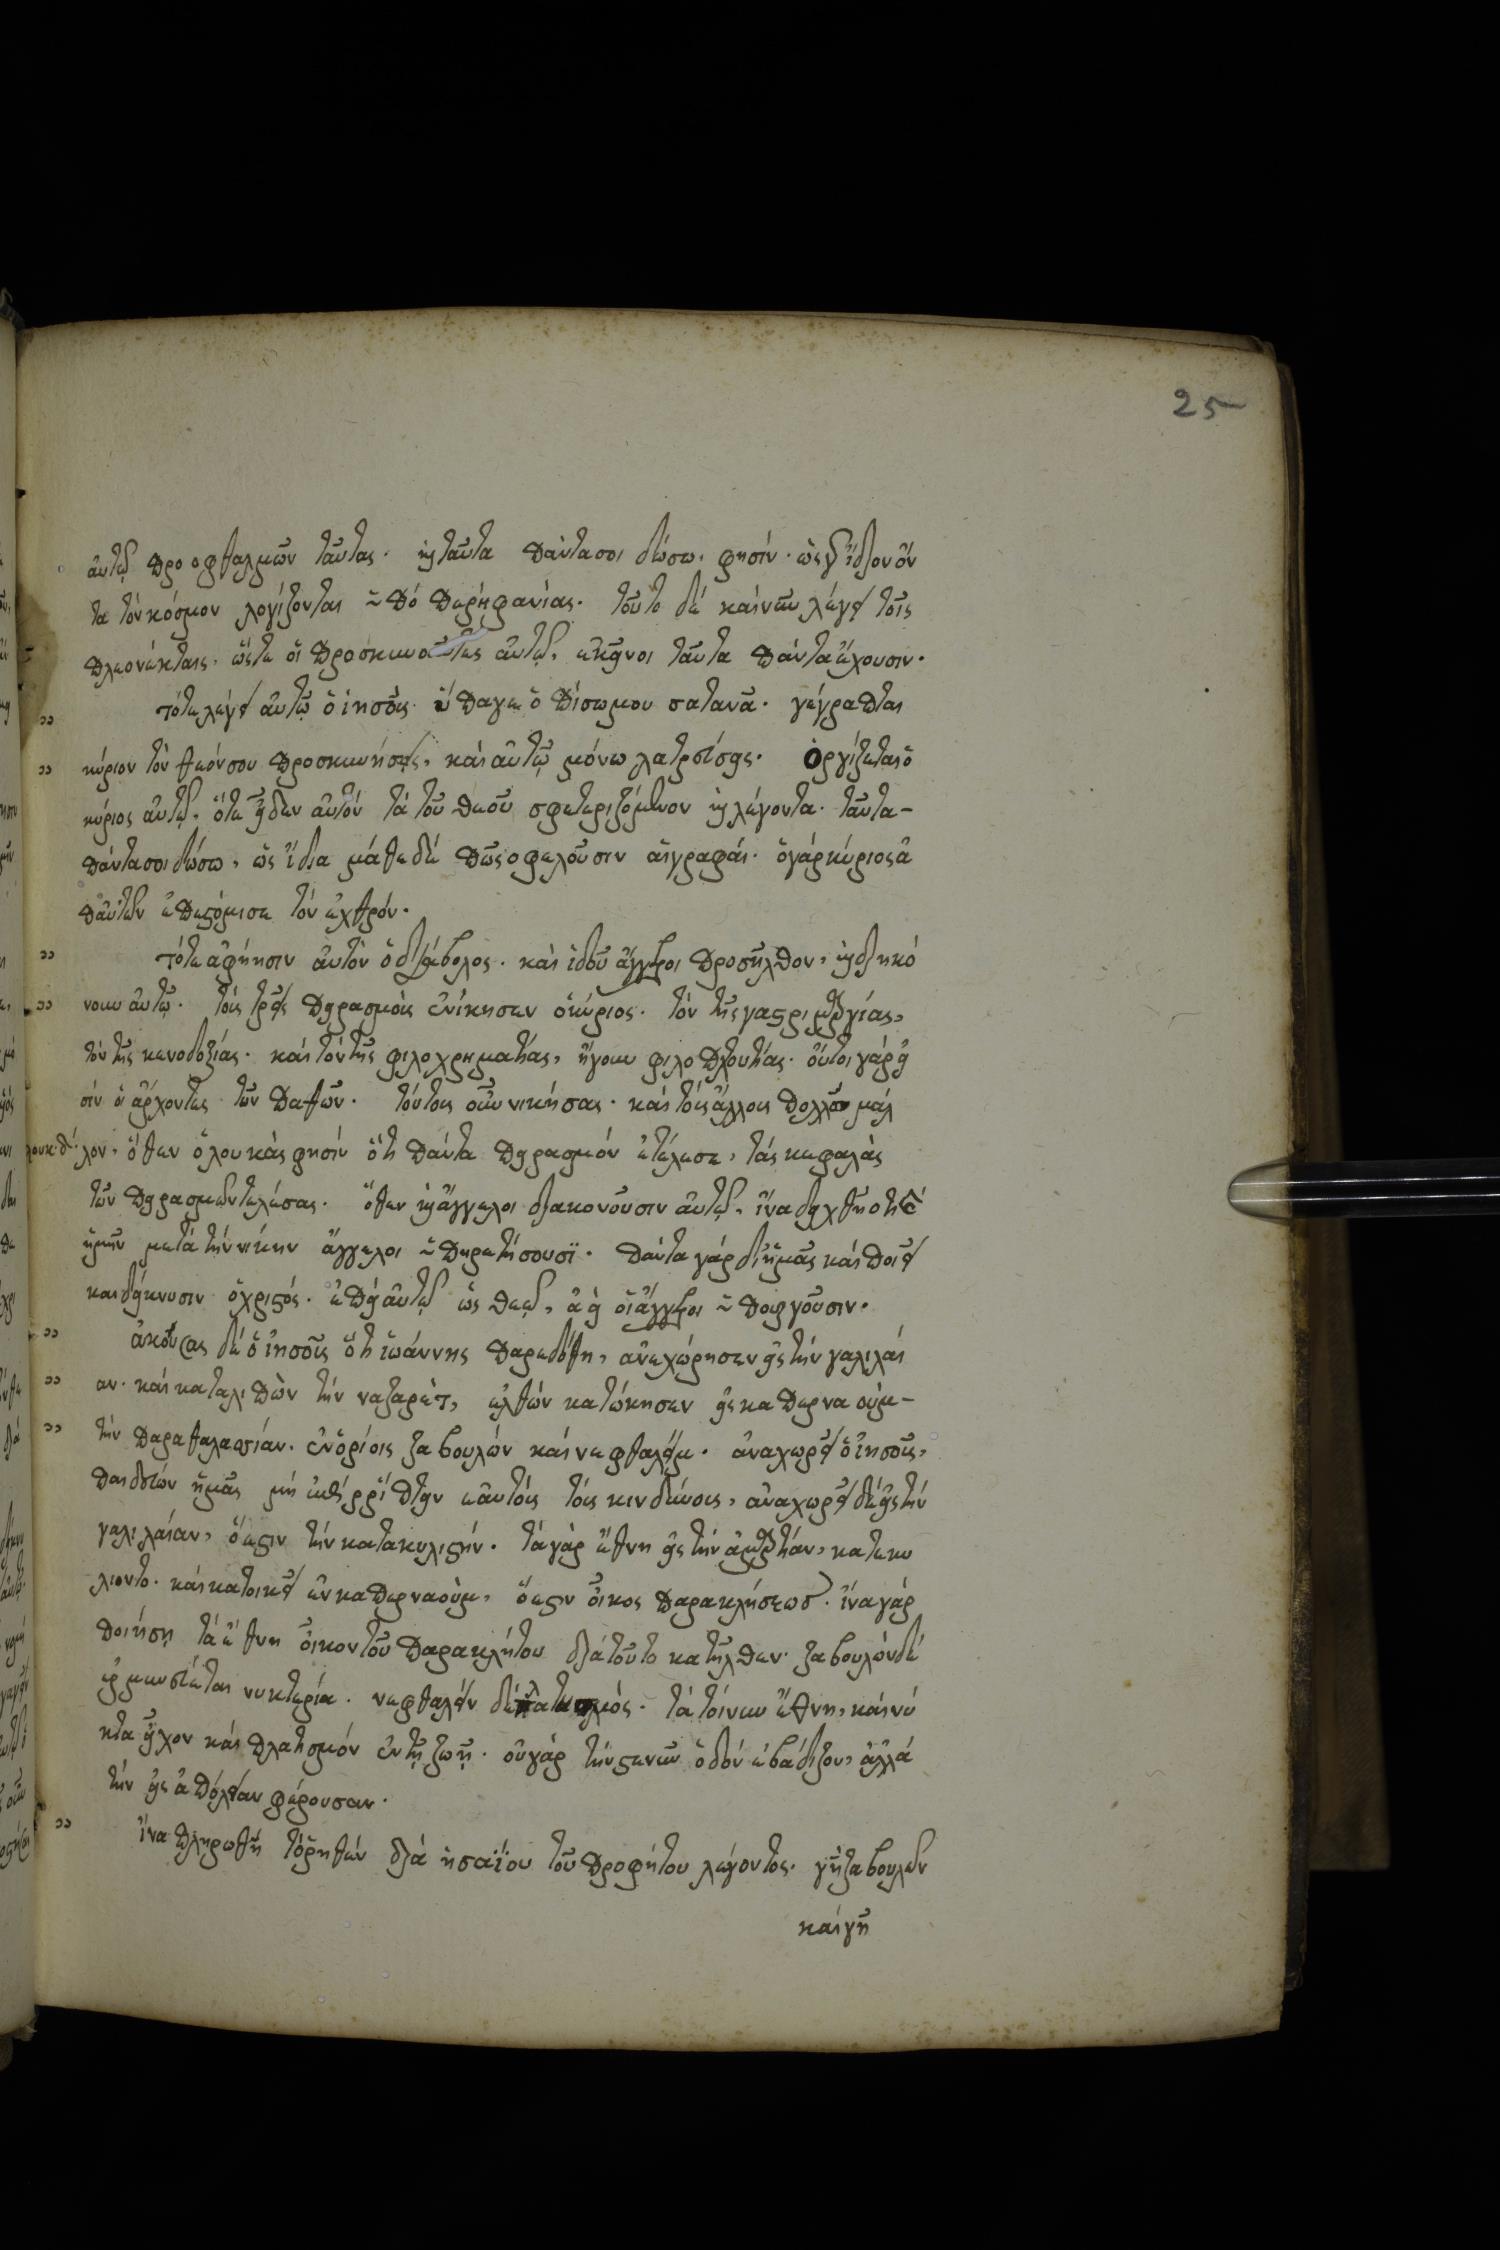 25
αὐτῶ προ οφθαλμῶν ταῦτας. κỳ ταῦτα πάντασοι δώσω. φησίν. ὡς γ' ἴδιον ὄν
τα τὸν κόσμον λογίζονται ὑπό περηφανίας. τοῦτο δέ καὶ νῦν λέγει τοῖς
πλεονέκταις. ὥστε οἱ προσκυνοῦντες αὐτῶ, ἐκεῖνοι ταῦτα πάντα ἔχουσιν.
τότε λέγει αὐτῷ ὁ ἰησοῦς ὕπαγε ὀπίσωμου σατανᾶ. γέγραπται
κύριον τὸν θεόνσου προσκυνήσεις, καὶ αὐτῷ μόνω λατρεύσεις. Ὀργίζεται ὁ
κύριος αὐτῷ. ὅτε εἶδεν αὐτόν τά τοῦ θεοῦ σφετεριζόμενον κỳ λέγοντα. ταῦτα-
πάντασοι δώσω, ὡς ἴδια μάθε δέ πῶς οφελοῦσιν αἱ γραφαί. ὁ γάρ κύριος ἀ
π' αὐτῶν ἐπεστόμισε τόν ἐχθρόν.
τότε αφίησιν αὐτὸν ὁ διάβολος. καὶ ἰδοῦ ἄγγελοι προσῆλθον, κỳ διηκό
νουν αὐτῷ. τοῖς τρεῖς πειρασμοῖς ἐνίκησεν ὁ κύριος. τόν τῆς γαστριμαργίας,
τόν τῆς κενοδοξίας. καὶ τόν τῆς φιλοχρηματίας, ἤγουν φιλοπλουτίας. οὗτοι γάρ εἰ
σίν οἱ ἄρχοντες τῶν παθῶν. τούτοις οὖν νικήσας. καὶ τοῖς ἄλλοις πολλῶ μάλ
λουκ. δ'. λον, ὅθεν ὁ λουκᾶς φησίν ὅτι πάντα πειρασμόν ἐτέλεσε, τάς κεφαλάς
τῶν πειρασμῶν τελέσας. ὅθεν κỳ ἄγγελοι διακονοῦσιν αὐτῶ, ἵνα δειχθῇ ὅτι καὶ
ἡμῖν μετά τήν νίκην ἄγγελοι ὑπηρετήσουσϊ. πάντα γάρ δι' ἡμᾶς καὶ ποιεῖ
και δείκνυσιν ὁ χριστός. ἐπεί αὐτῶ ὡς θεῶ, ἀεί οἱ ἄγγελοι ὑπουργοῦσιν.
ἀκούσας δέ ὁ ἰησοῦς ὅτι ἰωάννης παρεδόθη, ἀνεχώρησεν εἰς τήν γαλιλαί
αν. καὶ καταλιπὼν τήν ναζαρὲτ, ἐλθών κατώκησεν εἰς καπερναούμ-
τήν παραθαλασσίαν. ἐν ὁρίοις ζαβουλών καὶ νεφθαλείμ. ἀναχωρεῖ ὁ ἰησοῦς,
παιδεύων ἡμᾶς μή ἐπιρρίπτειν ἑαυτούς τοῖς κινδύνοις, ἀναχωρεῖ δέ εἰς τήν
γαλιλαίαν, ὅ ἐστιν τήν κατακυλιστήν. τά γάρ ἔθνη εἰς τήν ἁμαρτίαν, κατεκυ
λιοντο. καὶ κατοικεῖ ἐν καπερναούμ, ὅ ἐστιν οἶκος παρακλήσεως. ἵνα γάρ
ποιήσῃ τά ἔθνη οἶκον τοῦ παρακλήτου διά τοῦτο κατῆλθεν. ζαβουλών δέ
ἑρμηνεύεται νυκτερία. νεφθαλείν δέ πλατυσμός. τά τοίνυν ἔθνη, καὶ νύ
κτα εἶχον καὶ πλατησμόν ἐν τῇ ζωῇ. οὐ γάρ τήν στενήν ὁδόν ἐβάδιζον, ἀλλά
τήν εἰς ἀπόλειαν φέρουσαν.
ἵνα πληρωθῇ τό ῥηθέν διά ἡσαΐου τοῦ προφήτου λέγοντος. γῆ ζαβουλών
καὶ γῆ